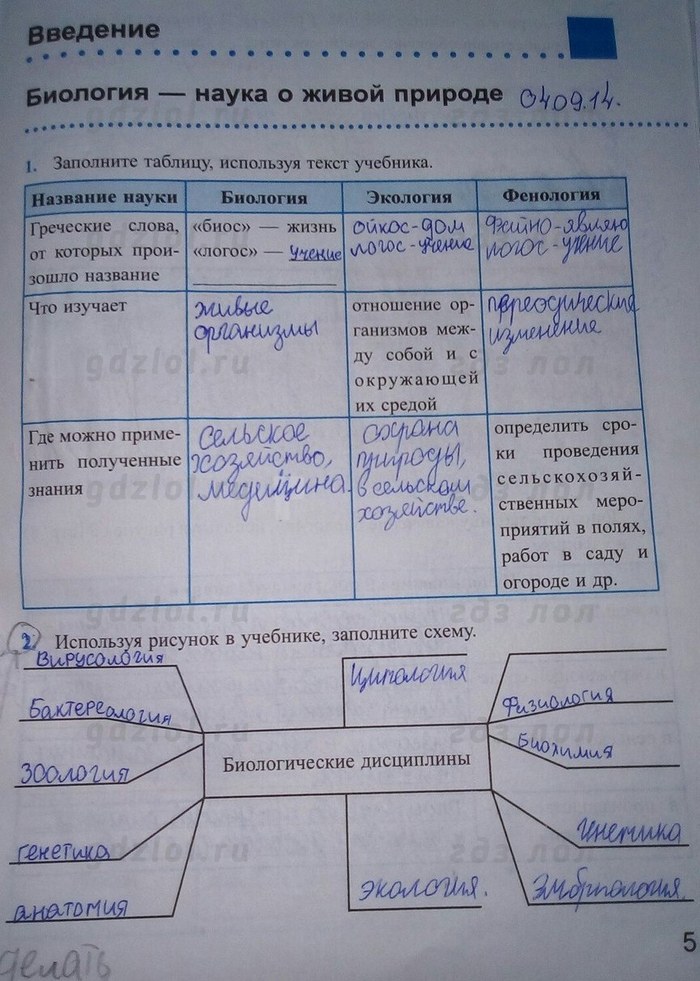 Введение
Биология — наука о живой природе 040914.
1. Заполните таблицу, используя текст учебника.
Название науки Биология Экология Фенология
Греческие слова, от которых прои-
зошло название
«биос» — жизнь
«логос» — учение
ойкос-дом
логос-учение
файно-являю
логос-учение
Что изучает
живые
организмы
отношение ор-
ганизмов меж-
ду собой и с
окружающей
их средой
переодические
изменение
Где можно приме-
нить полученные
знания
сельское
хозяйство,
медицина.
охрана
природы,
в сельском
хозяйстве.
определить сро-
ки проведения
сельскохозяй-
ственных меро-
приятий в полях,
работ в саду и
огороде и др.
2. Используя рисунок в учебнике, заполните схему.
Вирусология
Бактереология
Зоология
генетика
анатомия
Цитология
Биологические дисциплины
экология.
Физиология
Биохимия
генетика
Эмбриология.
5
делать
gdzlol.ru
гдз лол